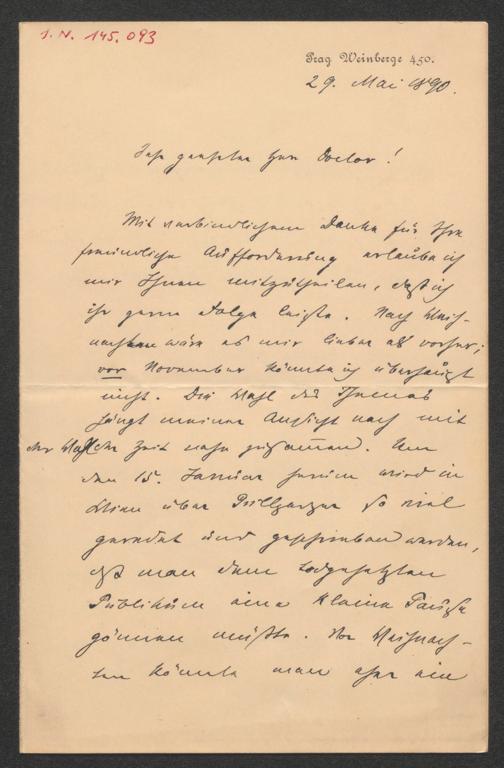 I. N. 145.093
Prag Weinberge 450.
29. Mai 1890.
Sehr geehrter Herr Doctor!
Mit verbindlichem Danke für Ihre
freundliche Aufforderung erlaube ich
mir Ihnen mitzutheilen, daß ich
ihr gerne Folge leiste. Nach Weih-
nachten wäre es mir lieber als vorher;
vor November könnte ich überhaupt
nicht. Die Wahl des Themas
hängt meiner Ansicht nach mit
der Wahl der Zeit nahe zusammen. Um
den 15. Januar herum wird in
Wien über Grillparzer so viel
geredet und geschrieben werden,
daß man dem todgehetzten
Publikum eine kleine Pause
gönnen müßte. Vor Weihnach-
ten könnte man eher ein